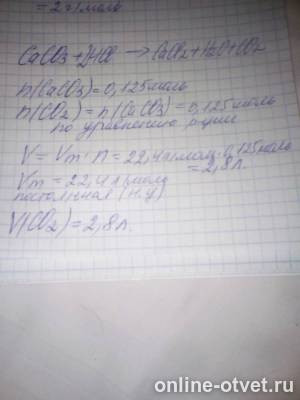 = 2 г/моль
CaCO3 + 2HCl → CaCl2 + H2O + CO2
n(CaCO3) = 0,125 моль
n(CO2) = n(CaCO3) = 0,125 моль
по уравнению
V = Vm · n = 22,4 л/моль · 0,125 моль
= 2,8 л.
Vm = 22,4 л/моль
постоянная (н.у)
V(CO2) = 2,8 л.
online-otvet.ru